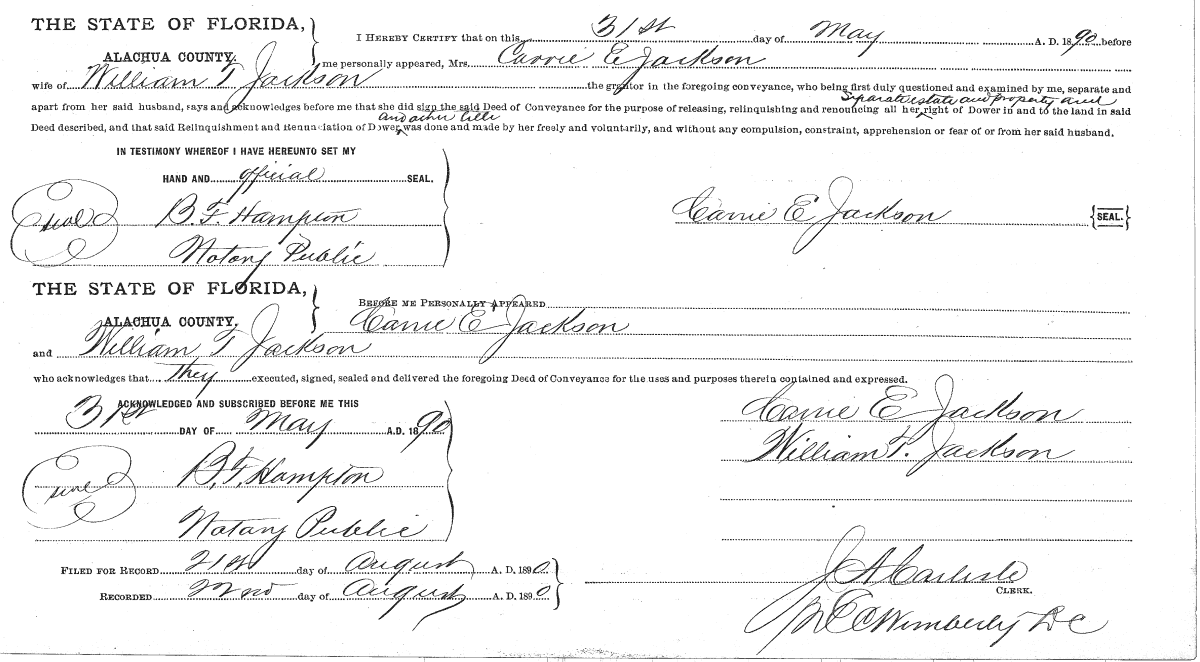 THE STATE OF FLORIDA,
ALACHUA COUNTY.
I HEREBY CERTIFY that on this 31st day of May A. D. 1890 before
me personally appeared, Mrs. Carrie E Jackson
wife of William T Jackson the grantor in the foregoing conveyance, who being first duly questioned and examined by me, separate and
separate estate and property and
apart from her said husband, says and acknowledges before me that she did sign the said Deed of Conveyance for the purpose of releasing, relinquishing and renouncing all her right of Dower in and to the land in said
and other title
Deed described, and that said Relinquishment and Renunciation of Dower was done and made by her freely and voluntarily, and without any compulsion, constraint, apprehension or fear of or from her said husband.
IN TESTIMONY WHEREOF I HAVE HEREUNTO SET MY
HAND AND official SEAL.
seal B. F. Hampton
Carrie E Jackson {SEAL.}
Notary Public
THE STATE OF FLORIDA,
ALACHUA COUNTY.
BEFORE ME PERSONALLY APPEARED
Carrie E Jackson
and William T Jackson
who acknowledges that they executed, signed, sealed and delivered the foregoing Deed of Conveyance for the uses and purposes therein contained and expressed.
ACKNOWLEDGED AND SUBSCRIBED BEFORE ME THIS
31st DAY OF May A.D. 1890
Carrie E Jackson
William T. Jackson
seal B. F. Hampton
Notary Public
FILED FOR RECORD 21st day of August A. D. 1890.
RECORDED 22nd day of August A. D. 1890
J A Carlisle
CLERK.
Wimberly DC